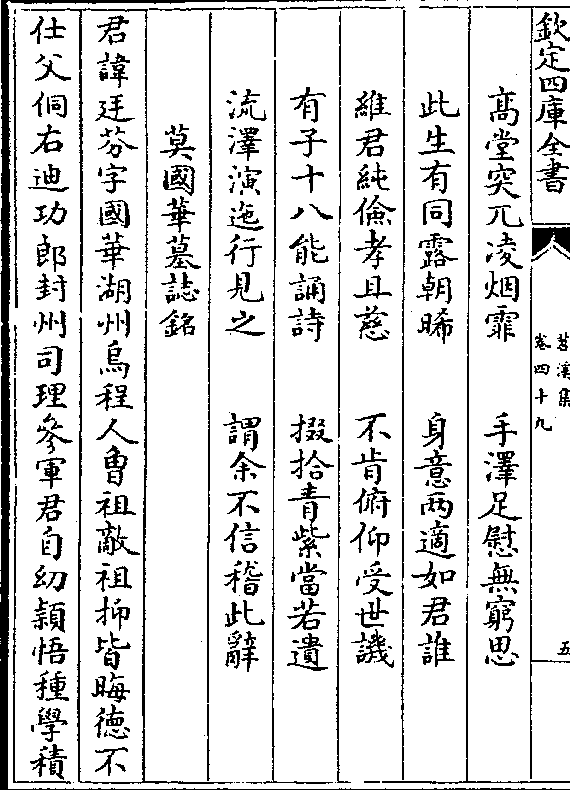 欽定四庫全書
苕溪集
卷四十九
五
高堂突兀凌烟霏 手澤足慰無窮思
此生有同露朝晞 身意兩適如君誰
維君純儉孝且慈 不肯俯仰受世譏
有子十八能誦詩 掇拾青紫當若遺
流澤演迤行見之 謂余不信稽此辭
莫國華墓誌銘
君諱廷芬字國華湖州烏程人曾祖敵祖抃皆晦德不
仕父侗右迪功郎封州司理參軍君自幼穎悟種學積